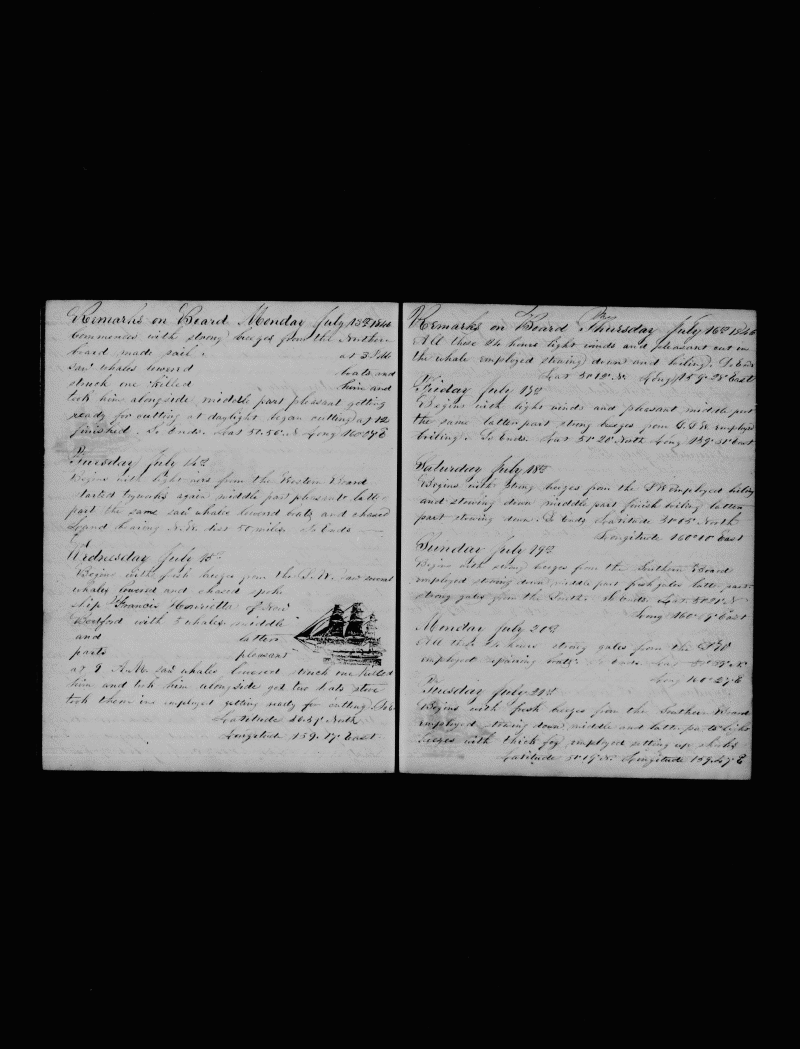 Remarks on Board Monday July 13th 1846
Commences with strong breezes from the Northern
board made sail. at 3 P.M.
saw whales lowered boats and
struck one killed him and
took him alongside, middle part pleasant getting
ready for cutting at daylight began cutting at 12
finished. So Ends. Lat 51.56 N Long 160
Tuesday July 14th
Begins with light airs from the Western Board
started again middle part pleasant latter
part the same saw whales lowered boats and chased
Land bearing N.W. dist 50 miles So Ends
Wednesday July 15th
Begins with fresh breezes from the S.W. saw
whales lowered and chased spoke
ship Francis Henrietta of New
Bedford with 5 whales middle
and latter
parts pleasant
at 9 A.M. saw whales lowered struck one killed
him and took him alongside got two boats stove
took them in employed getting ready for cutting.
Latitude North
Longitude 159.17 East
Remarks on Board Thursday July 16th 1846
All these 24 hours light winds and pleasant cut in
the whale employed stowing down and boiling. So Ends
Lat 51 N. Long 159 East
Friday July 17th
Begins with light winds and pleasant middle part
the same latter part strong breezes from employed
boiling. So Ends. Lat 51 North Long 159 East
Saturday July 18th
Begins with strong breezes from the S.W employed boiling
and stowing down middle part finish boiling latter
part stowing down. So Ends Latitude North
Longitude 160 East
Sunday July 19th
Begins with strong breezes from the Southern Board
employed stowing down, middle part fresh gales latter part
strong gales from the South. So Ends Lat. N
Long 160 East
Monday July 20th
All these 24 hours strong gales from the
employed repairing boats. So Ends Lat N
Long 160 E
Tuesday July 21st
Begins with fresh breezes from the Southern Board
employed stowing down, middle and latter parts light
breezes with thick fog, employed setting up
Latitude 51 N. Longitude 159 E